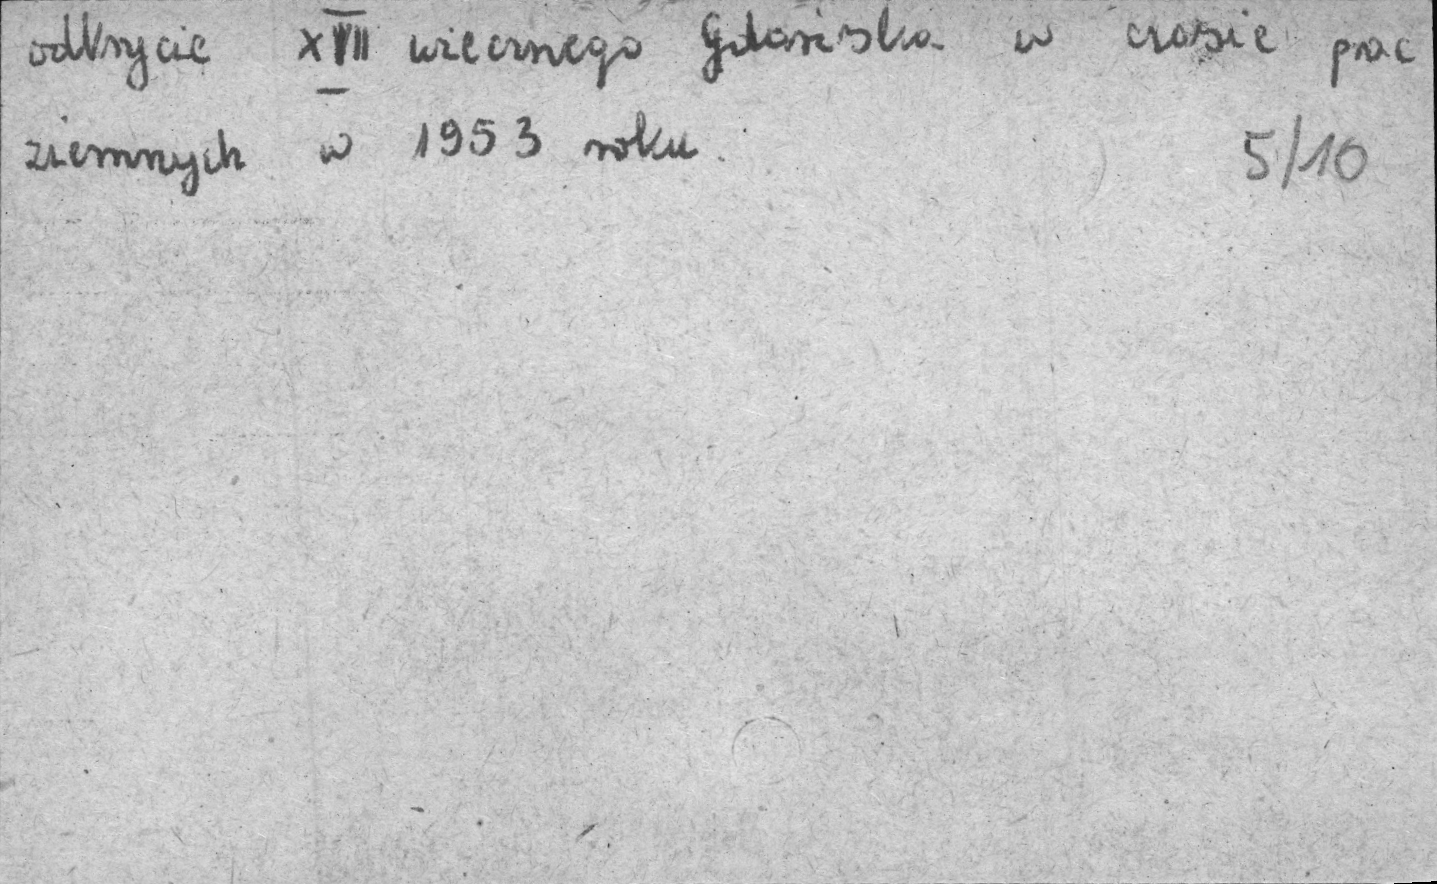 odkrycie XVII wiecznego Gdańska w czasie prac
ziemnych w 1953 roku.
5/10